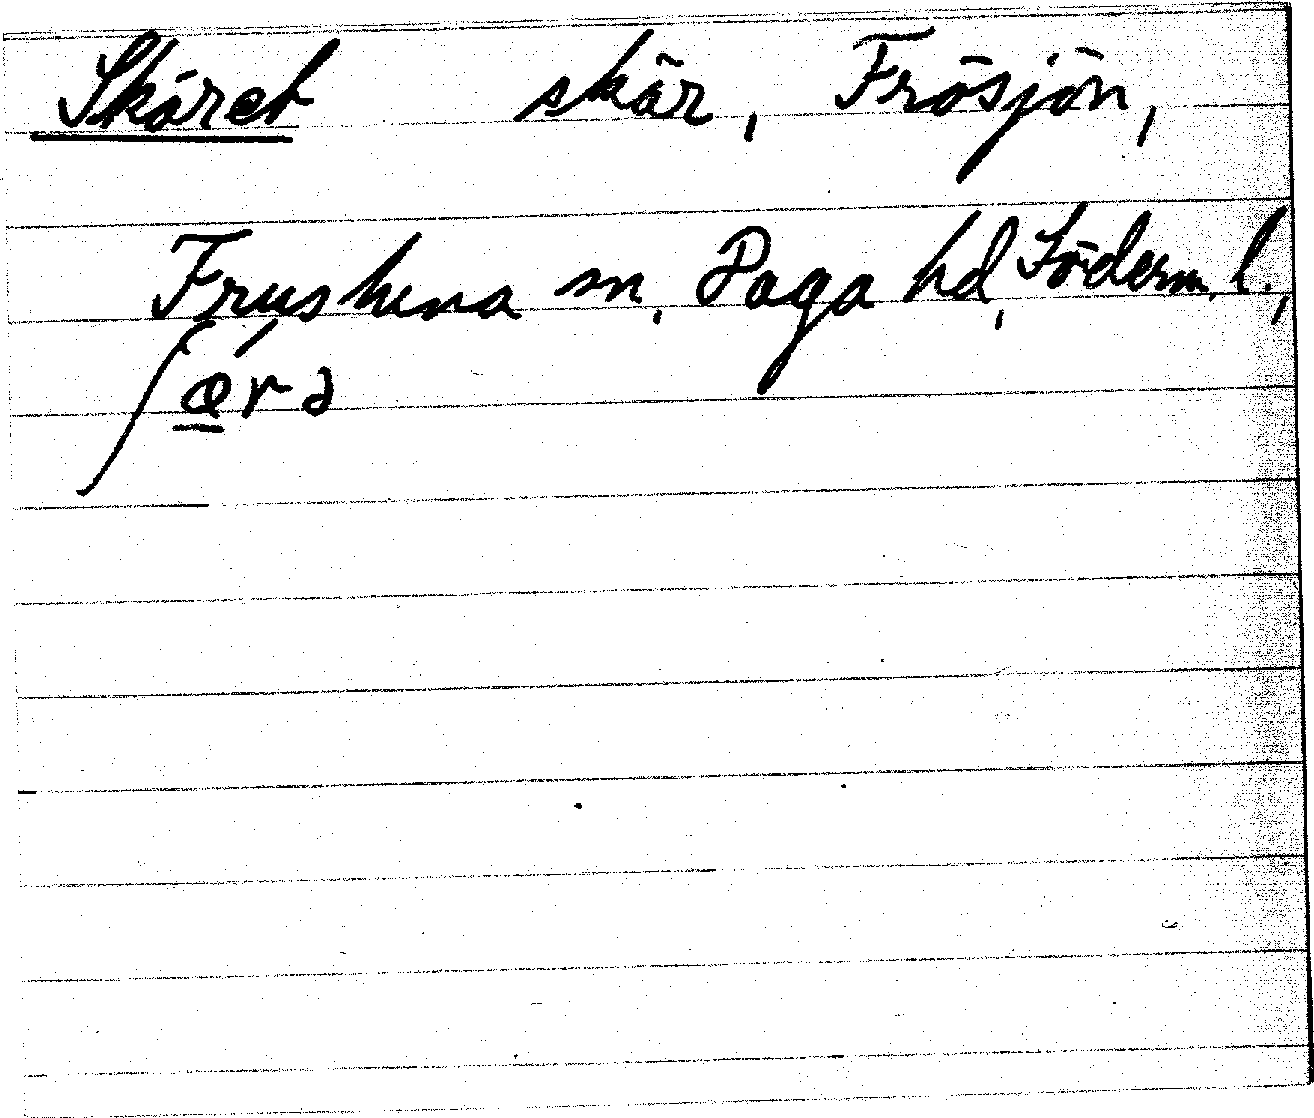 Skäret skär, Frösjön,
Frustuna sn, Daga hd, Söderm. l.,
ʃǽ̱rə